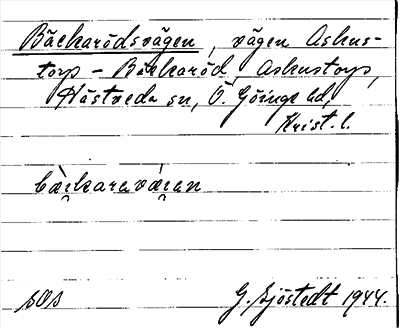 Bäckarödsvägen, vägen Askus-
torp – Bäckaröd, Askustorp,
Hästveda sn, Ö. Göinge hd,
Krist. l.
bàkaravá̱ran
sOs
G. Sjöstedt 1944.